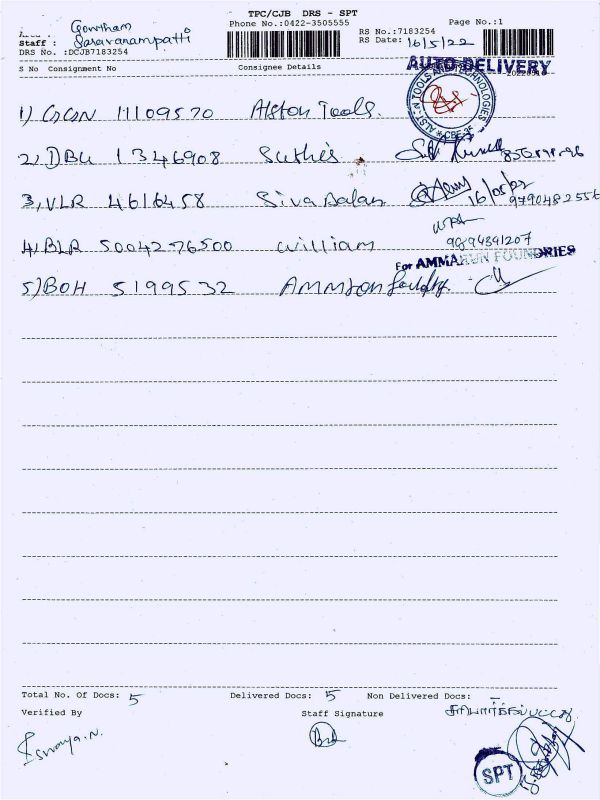 TPC/CJB DRS - SPT
Phone No.:0422-3505555 Page No.:1
Gowtham
Staff : Saravanampatti
RS No.:7183254
RS Date: 16/5/22
DRS No. :DCJB7183254
AUTO DELIVERY
S No Consignment No Consignee Details
ALSTON TOOLS AND TECHNOLOGIES CBE-35
1) GCN 11109570 Alston Tools.
2) DBU 1346908 Suthis
3) VLR 4616458 Siva Balan 16/05/22
9790482556
4) BLR 50042276500 William
9894391207
For AMMARUN FOUNDRIES
5) BOH 5199532 AMMron foundry.
Total No. Of Docs: 5 Delivered Docs: 5 Non Delivered Docs: —
Verified By Staff Signature சரிபார்க்கப்பட்டது
SPT